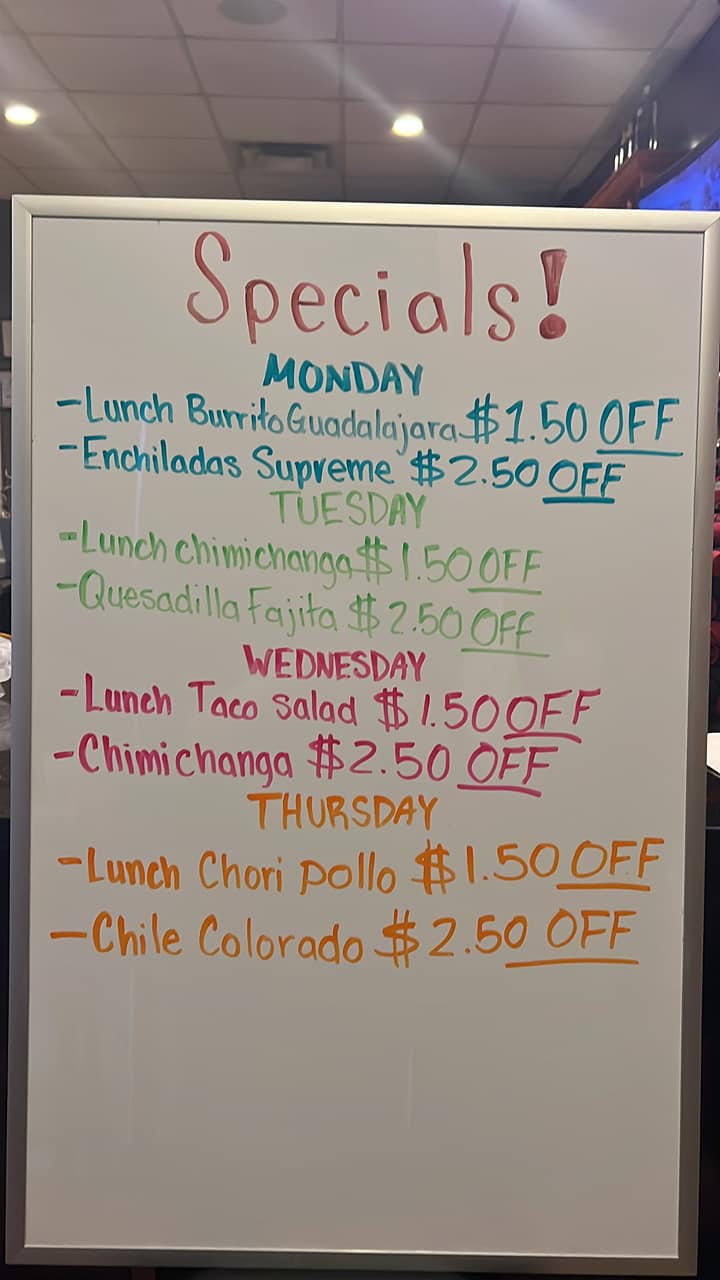 Specials!
MONDAY
-Lunch Burrito Guadalajara $1.50 OFF
-Enchiladas Supreme $2.50 OFF
TUESDAY
-Lunch chimichanga $1.50 OFF
-Quesadilla Fajita $2.50 OFF
WEDNESDAY
-Lunch Taco Salad $1.50 OFF
-Chimichanga $2.50 OFF
THURSDAY
-Lunch Chori pollo $1.50 OFF
-Chile Colorado $2.50 OFF